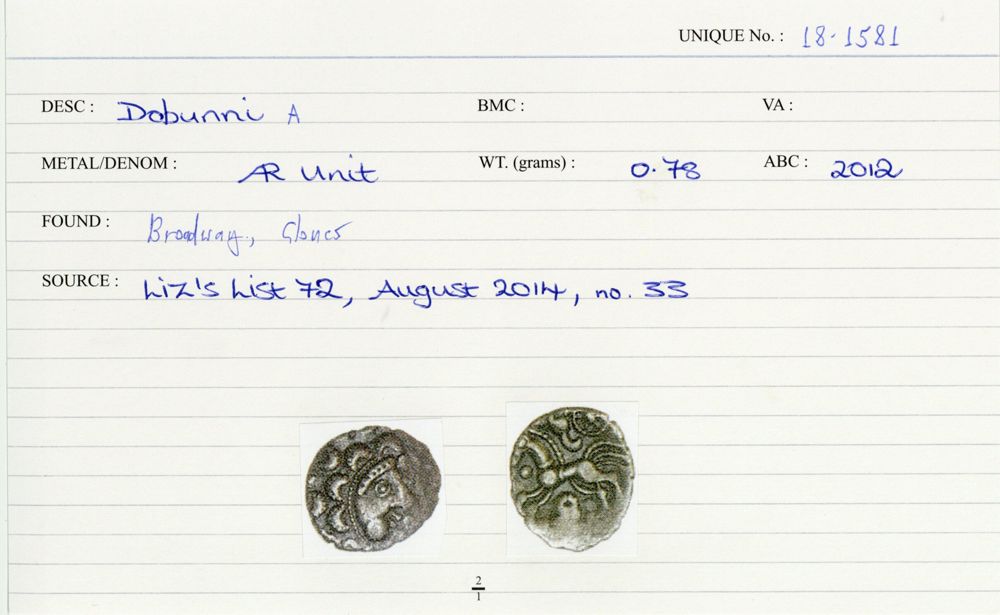 UNIQUE No. : 18-1581
DESC : Dobunni A BMC : VA :
METAL/DENOM : AR Unit WT. (grams) : 0.78 ABC : 2012
FOUND : Broadway, Gloucs
SOURCE : Liz's List 72, August 2014, no. 33
2
1